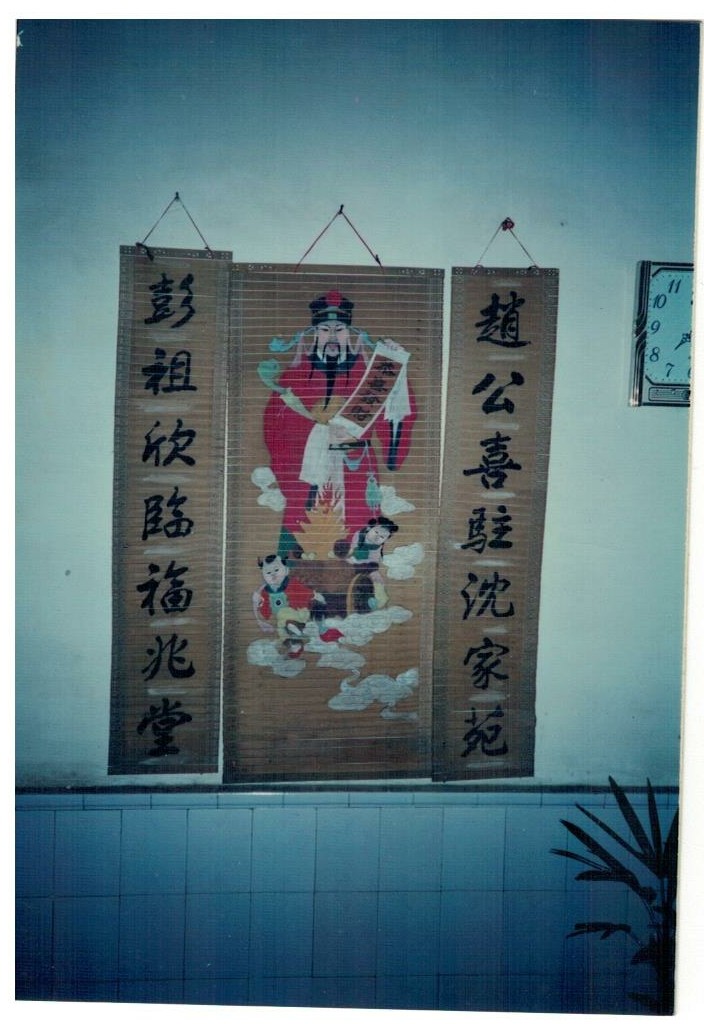 趙公喜駐沈家苑
彭祖欣臨福兆堂
11
10
9
8
7
6